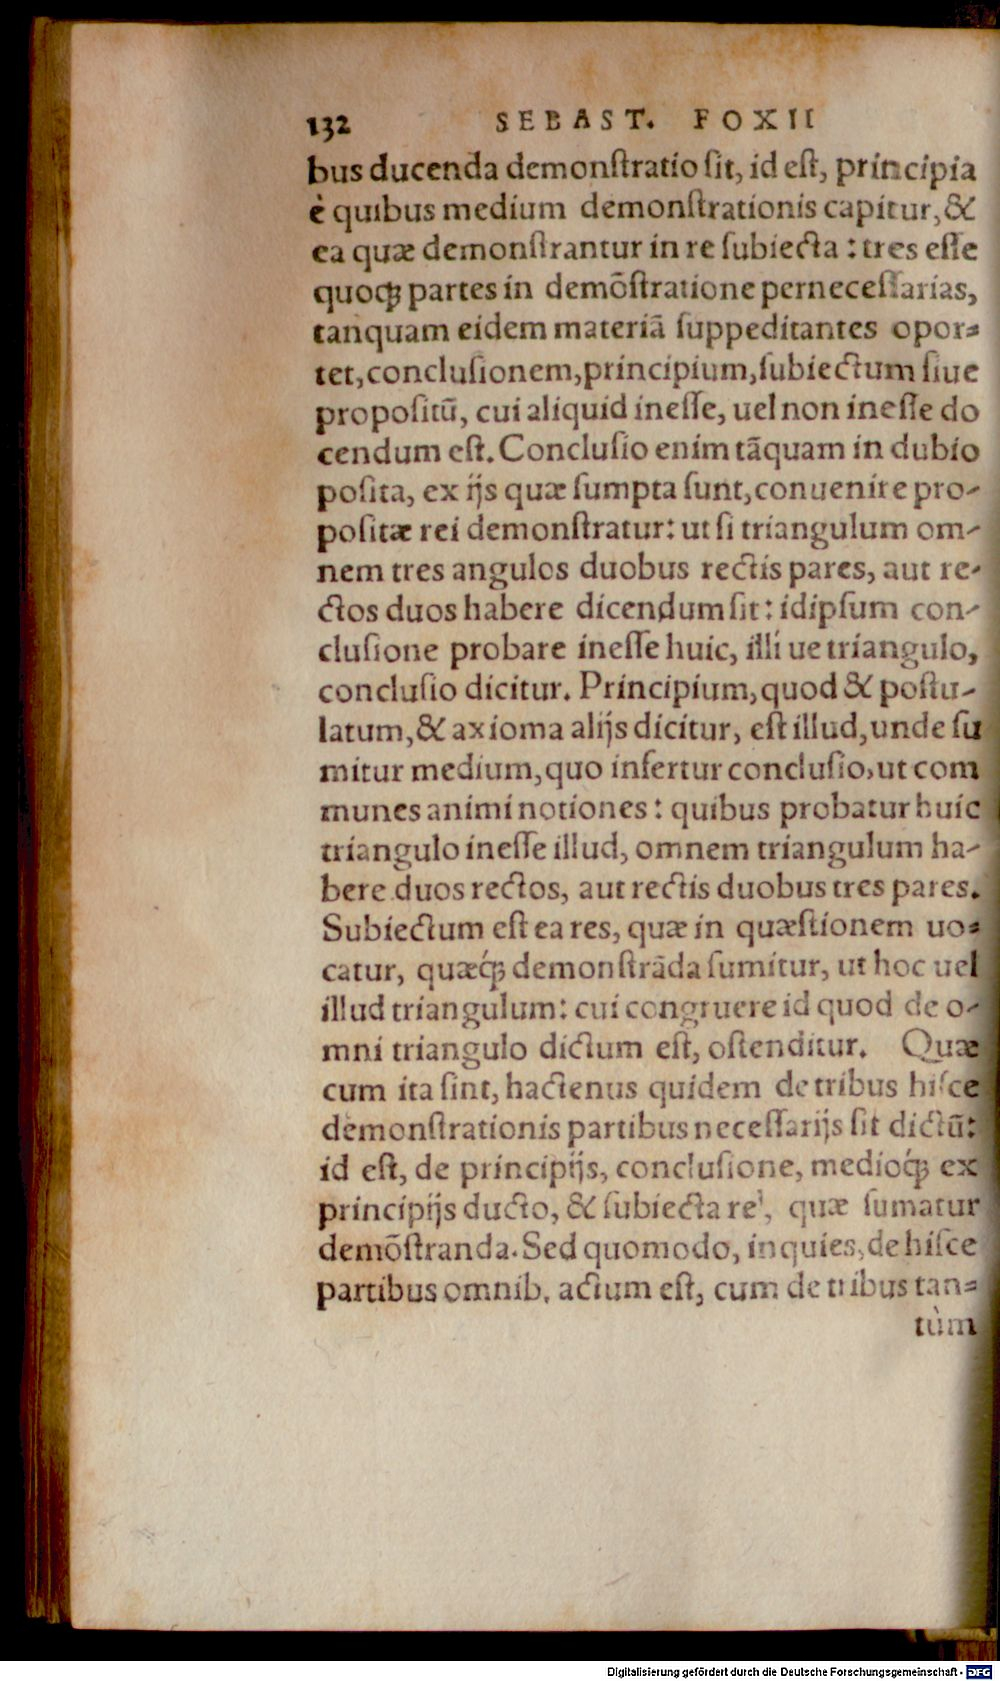 132 SEBAST. FOXII
bus ducenda demonſtratio ſit, id eſt, principia
è quibus medium demonſtrationis capitur, &
ea quæ demonſtrantur in re ſubiecta: tres eſſe
quoqꝫ partes in demõſtratione perneceſſarias,
tanquam eidem materiã ſuppeditantes opor⸗
tet, concluſionem, principium, ſubiectum ſiue
propoſitũ, cui aliquid ineſſe, uel non ineſſe do
cendum eſt. Concluſio enim tãquam in dubio
poſita, ex ijs quæ ſumpta ſunt, conuenire pro-
poſitæ rei demonſtratur: ut ſi triangulum om-
nem tres angulos duobus rectis pares, aut re-
ctos duos habere dicendum ſit: idipſum con-
cluſione probare ineſſe huic, illi ue triangulo,
concluſio dicitur. Principium, quod & poſtu-
latum, & axioma alijs dicitur, eſt illud, unde ſu
mitur medium, quo infertur concluſio, ut com
munes animi notiones: quibus probatur huic
triangulo ineſſe illud, omnem triangulum ha-
bere duos rectos, aut rectis duobus tres pares.
Subiectum eſt ea res, quæ in quæſtionem uo⸗
catur, quæq́ꝫ demonſtrãda ſumitur, ut hoc uel
illud triangulum: cui congruere id quod de o-
mni triangulo dictum eſt, oſtenditur. Quæ
cum ita ſint, hactenus quidem de tribus hiſce
demonſtrationis partibus neceſſarijs ſit dictũ:
id eſt, de principijs, concluſione, medioq́ꝫ ex
principijs ducto, & ſubiecta re, quæ ſumatur
demõſtranda. Sed quomodo, inquies, de hiſce
partibus omnib. actum eſt, cum de tribus tan⸗
tùm
Digitalisierung gefördert durch die Deutsche Forschungsgemeinschaft - DFG